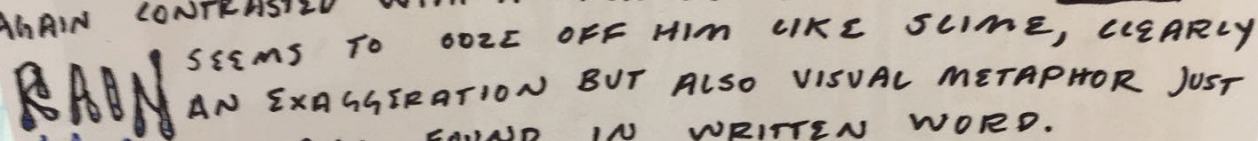 AGAIN CONTRASTED
SEEMS TO OOZE OFF HIM LIKE SLIME, CLEARLY
RAIN AN EXAGGERATION BUT ALSO VISUAL METAPHOR JUST
FOUND IN WRITTEN WORD.